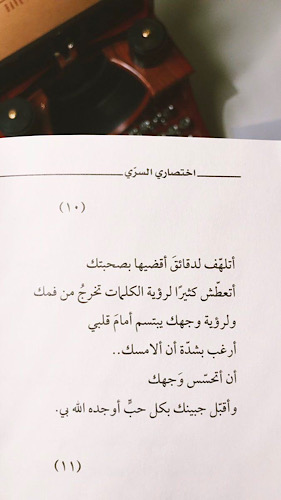 اختصاري السرّي
(١٠)
أتلهّف لدقائقَ أقضيها بصحبتك
أتعطّش كثيرًا لرؤية الكلمات تخرجُ من فمك
ولرؤية وجهك يبتسم أمامَ قلبي
أرغب بشدّة أن ألامسك..
أن أتحسّس وَجهك
وأقبّل جبينك بكل حبٍّ أوجده الله بي.
(١١)